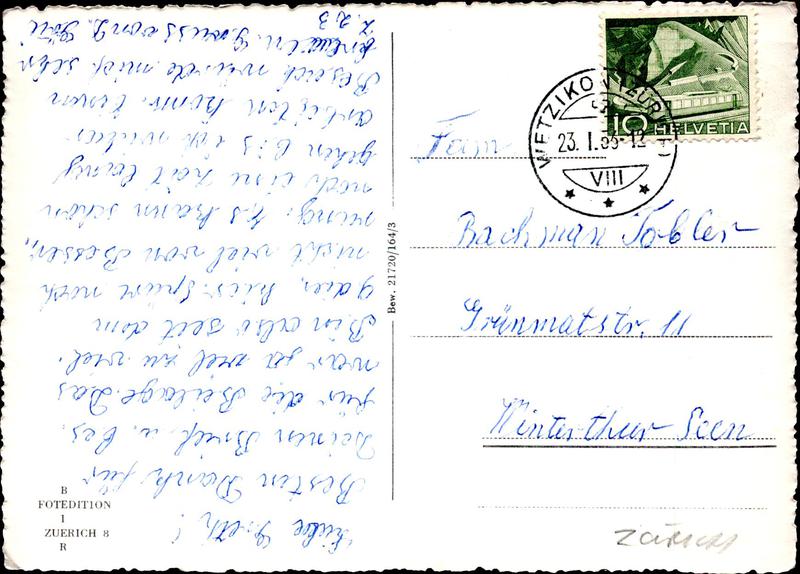 Liebe Greth!
Besten Dank für
Deinen Brief u. bes.
für die Beilage. Das
war ja viel zu viel.
Bin also seit dem
9 dies, hier. Spüre noch
nicht viel von Besser,,
rung. Es kann schon
noch eine Zeit lang
gehen bis ich wieder
arbeiten kann. Einen
Besuch würde mich sehr
freuen. Gruss von
Z. 2 3
BIR
FOTEDITION
ZUERICH 8
Bew. 21720/164/3
WETZIKON (ZÜRICH)
23. I. 53-12
VIII
10 HELVETIA
Fam
Bachman Tobler
Grünmatstr. 11
Winterthur Seen
Zürich